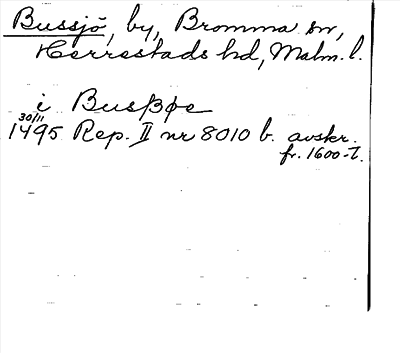 Bussjö, by, Bromma sn,
Herrestads hd, Malm. l.
i Busßøe
30/11
1495 Rep. II nr 8010 b. avskr.
fr. 1600-t.